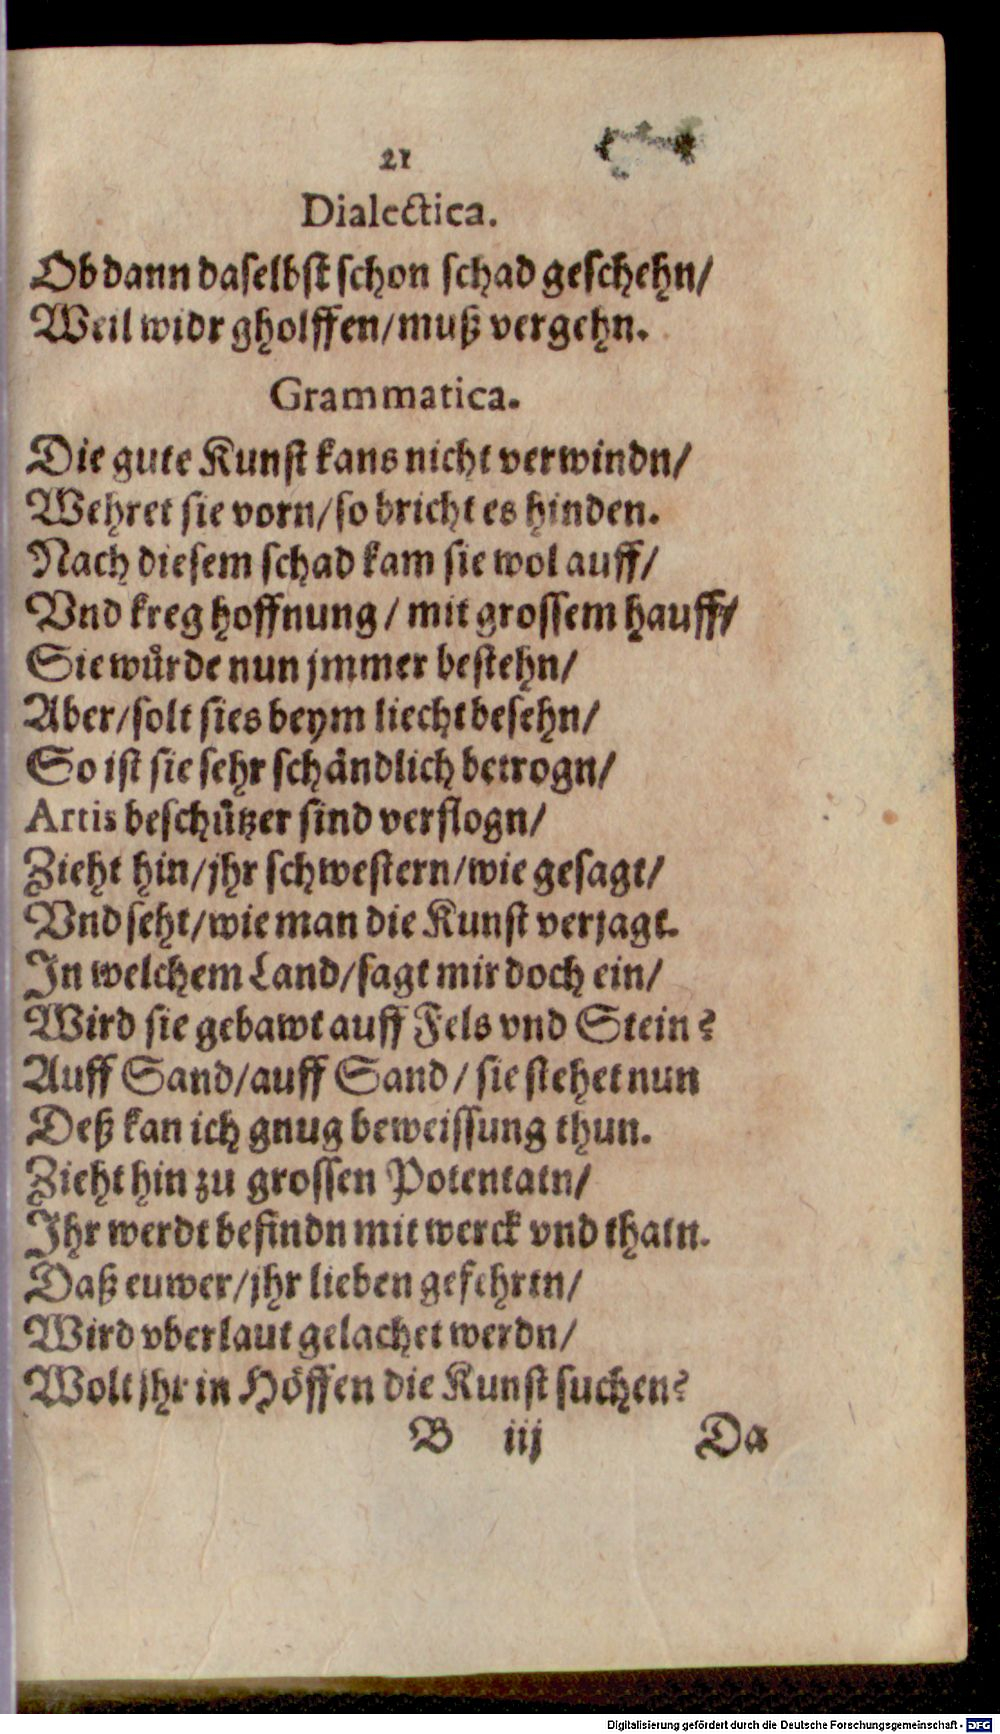 21
Dialectica.
Ob dann daselbst schon schad geschehn/
Weil widr gholffen/muß vergehn.
Grammatica.
Die gute Kunst kans nicht verwindn/
Wehret sie vorn/so bricht es hinden.
Nach diesem schad kam sie wol auff/
Vnd kreg hoffnung/ mit grossem hauff/
Sie wůrde nun jmmer bestehn/
Aber/solt sies beym liecht besehn/
So ist sie sehr schåndlich betrogn/
Artis beschůtzer sind verflogn/
Zieht hin/jhr schwestern/wie gesagt/
Vnd seht/wie man die Kunst verjagt.
In welchem Land/sagt mir doch ein/
Wird sie gebawt auff Fels vnd Stein?
Auff Sand/auff Sand/ sie stehet nun
Deß kan ich gnug beweissung thun.
Zieht hin zu grossen Potentatn/
Ihr werdt befindn mit werck vnd thatn.
Daß euwer/jhr lieben gefehrtn/
Wird vberlaut gelachet werdn/
Wolt jhr in Höffen die Kunst suchen?
B iij Da
Digitalisierung gefördert durch die Deutsche Forschungsgemeinschaft - DFG